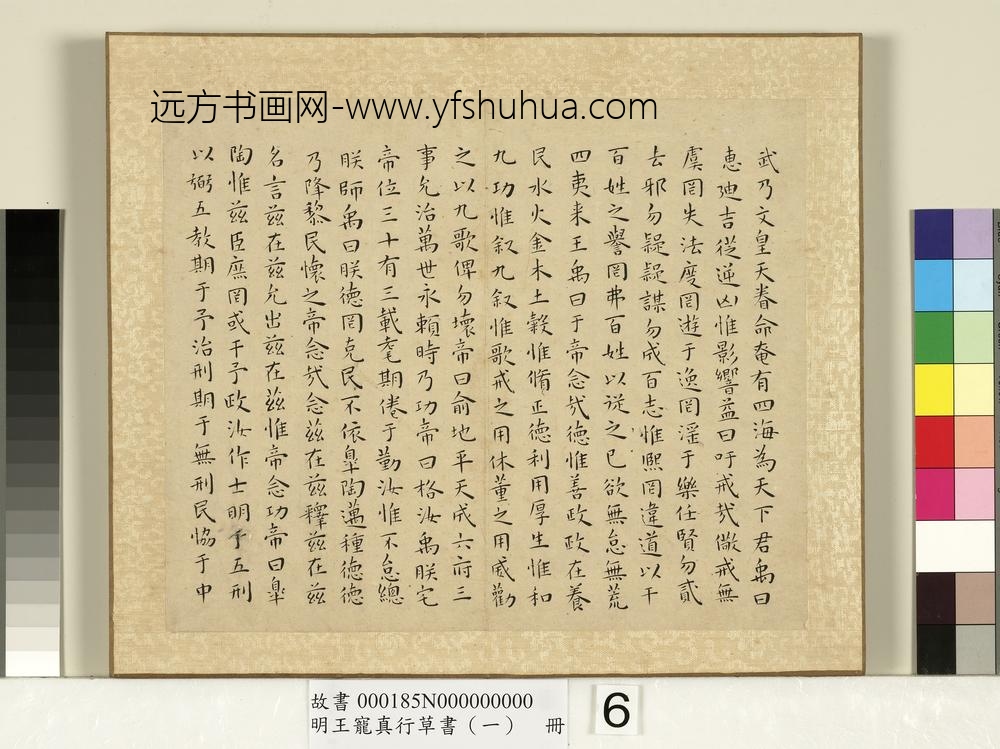 远方书画网-www.yfshuhua.com
武乃文皇天眷命奄有四海為天下君禹曰
惠廸吉從逆凶惟影響益曰吁戒㢤儆戒無
虞罔失法度罔遊于逸罔滛于樂任賢勿貳
去邪勿疑疑謀勿成百志惟熙罔違道以干
百姓之譽罔咈百姓以從之己欲無怠無荒
四夷来王禹曰于帝念㢤德惟善政政在養
民水火金木土穀惟脩正德利用厚生惟和
九功惟叙九叙惟歌戒之用休董之用威勸
之以九歌俾勿壞帝曰俞地平天成六府三
事允治萬世永頼時乃功帝曰格汝禹朕宅
帝位三十有三載耄期倦于勤汝惟不怠總
朕師禹曰朕德罔克民不依臯陶邁種德德
乃降黎民懷之帝念㢤念兹在兹釋兹在兹
名言兹在兹允出兹在兹惟帝念功帝曰臯
陶惟兹臣庶罔或干予政汝作士明于五刑
以弼五教期于予治刑期于無刑民恊于中
故書 000185N000000000
明王寵真行草書（一） 冊
6